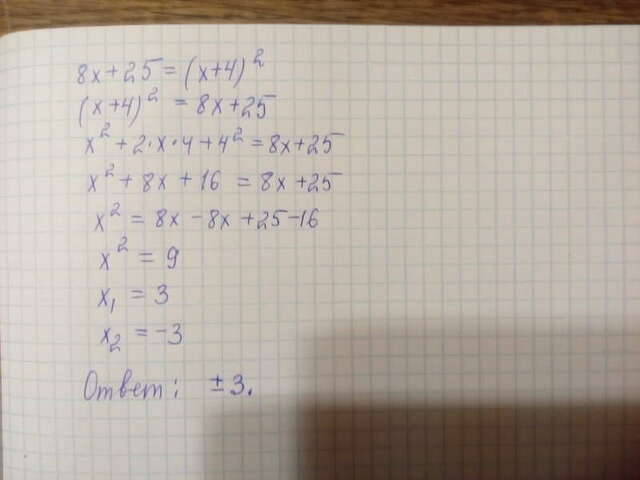 8x+25=(x+4)²
(x+4)² = 8x+25
x²+2·x·4+4²=8x+25
x²+8x+16 = 8x+25
x² = 8x-8x+25-16
x² = 9
x₁ = 3
x₂ = -3
Ответ: ±3.